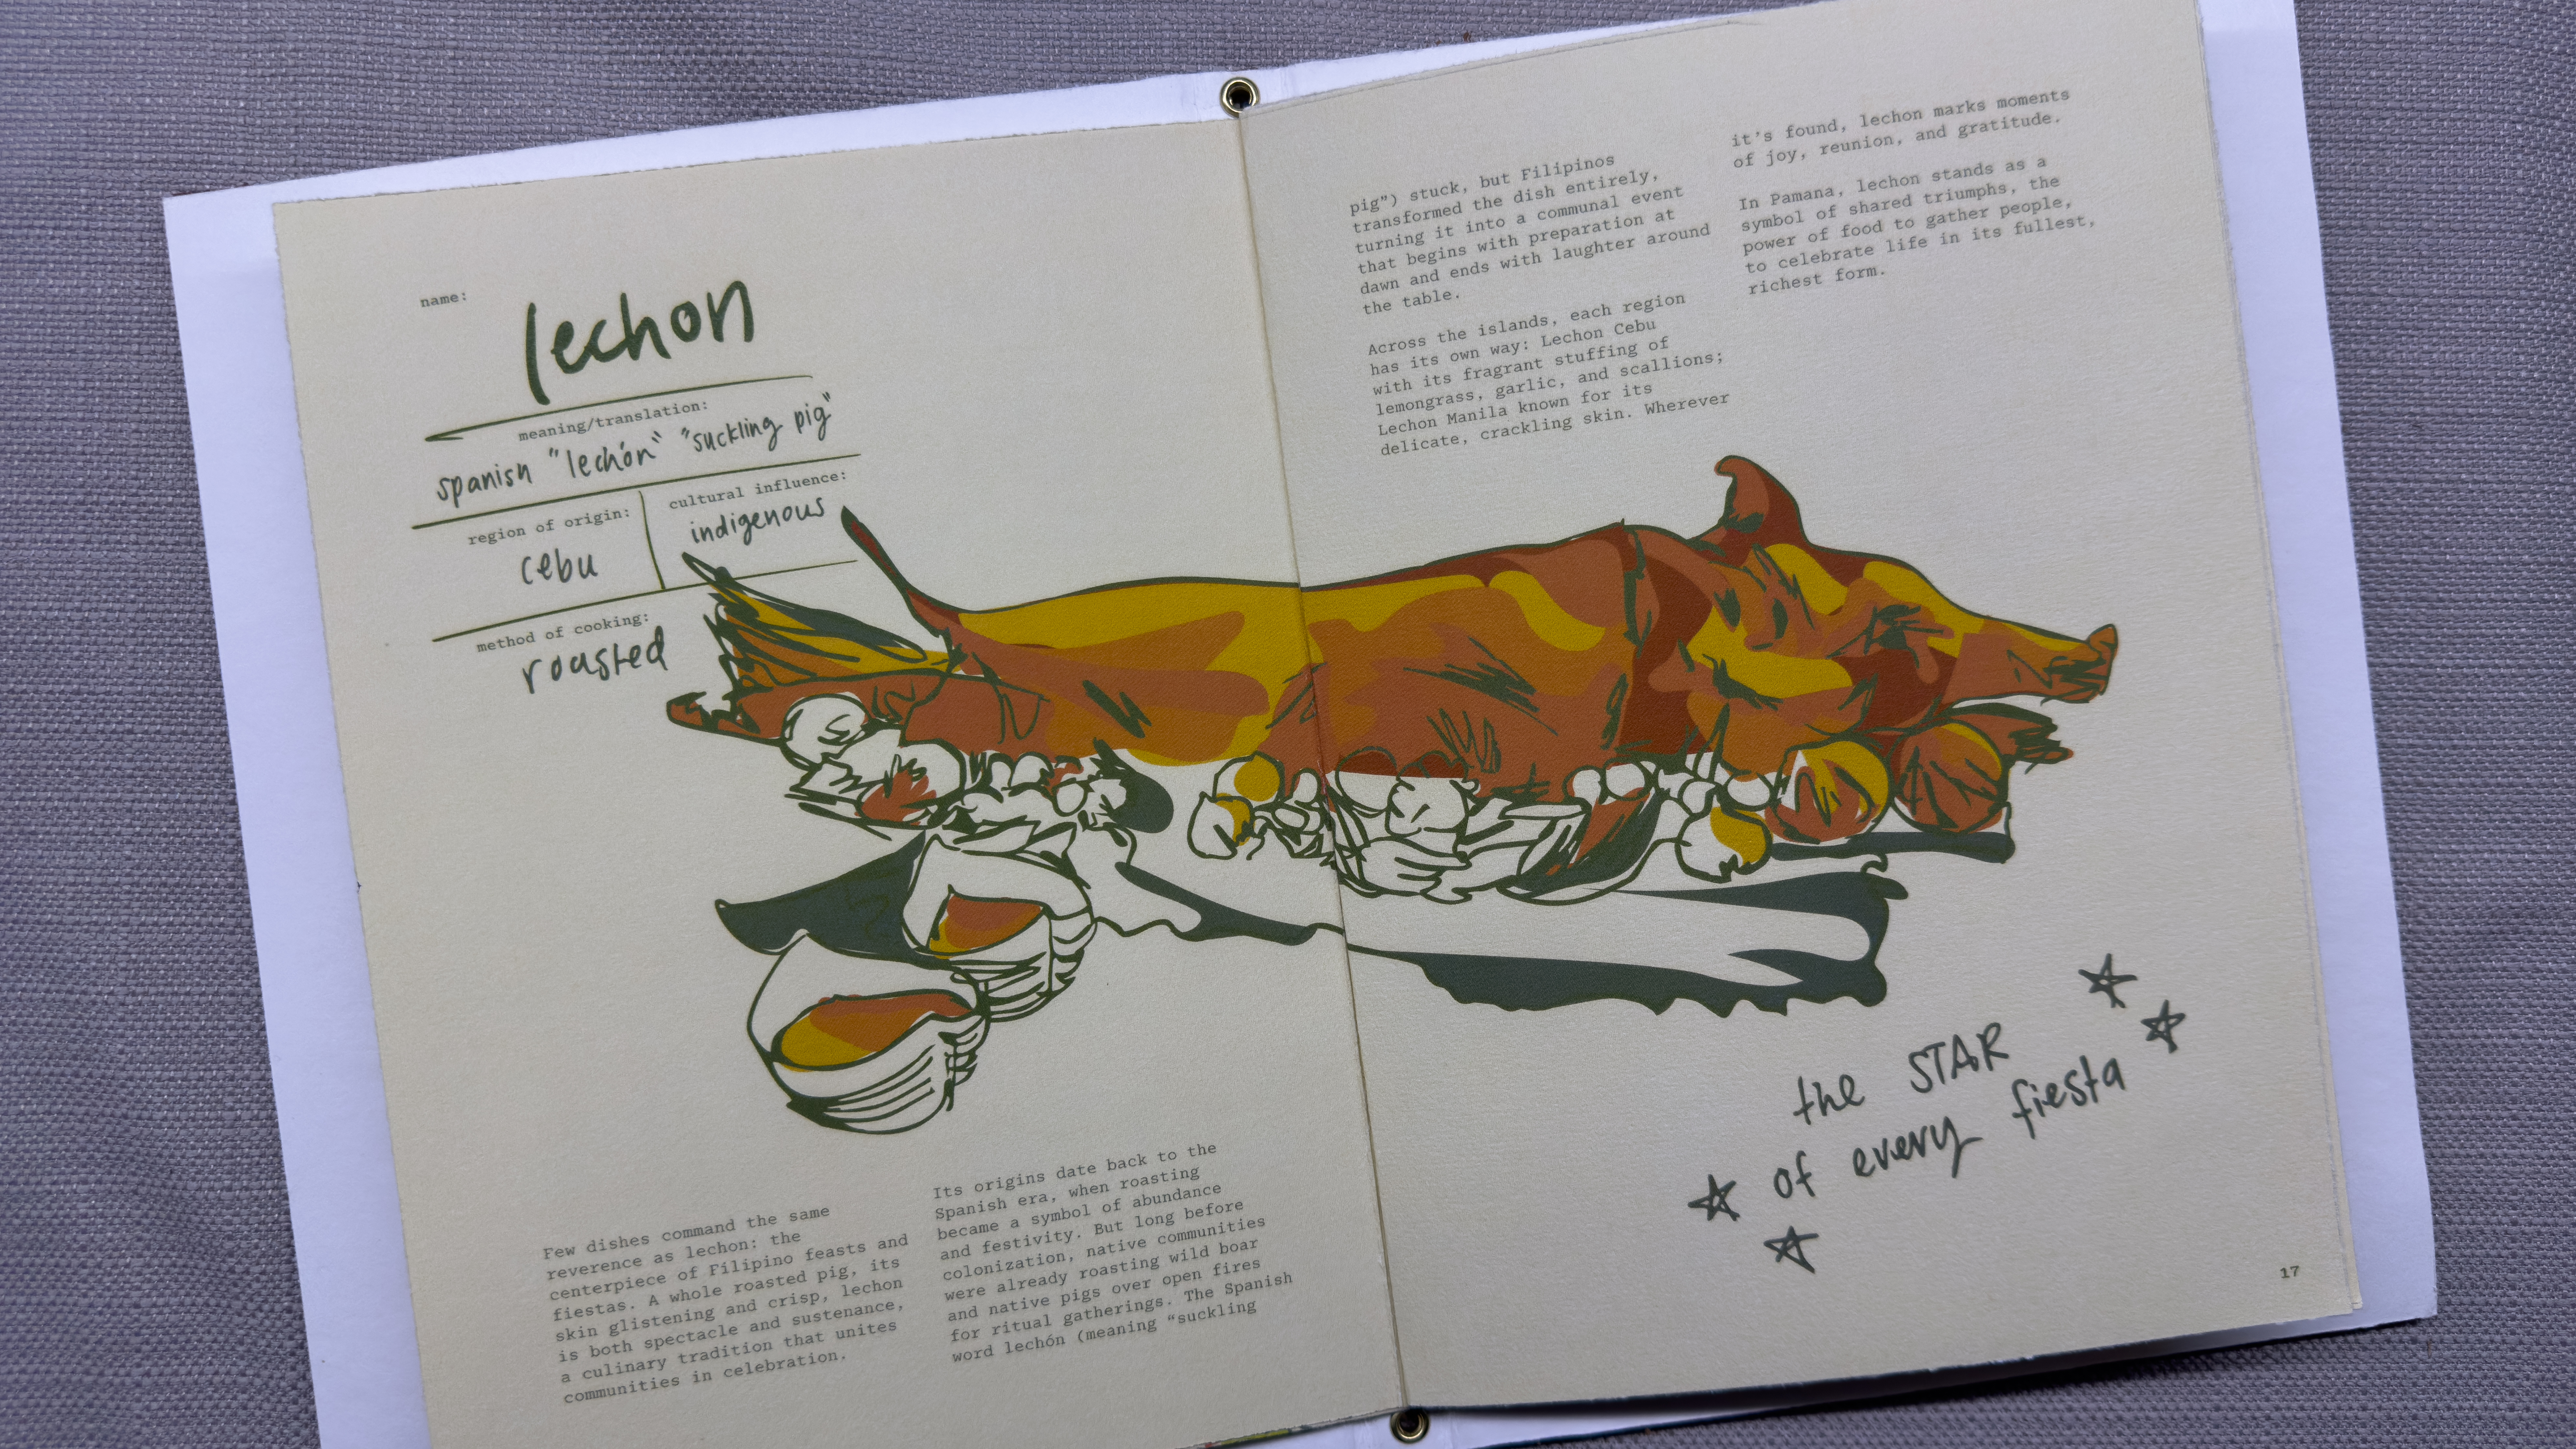 name:
lechon
meaning/translation:
spanish "lechón" "suckling pig"
region of origin:
cebu
cultural influence:
indigenous
method of cooking:
roasted
Few dishes command the same
reverence as lechon: the
centerpiece of Filipino feasts and
fiestas. A whole roasted pig, its
skin glistening and crisp, lechon
is both spectacle and sustenance,
a culinary tradition that unites
communities in celebration.
Its origins date back to the
Spanish era, when roasting
became a symbol of abundance
and festivity. But long before
colonization, native communities
were already roasting wild boar
and native pigs over open fires
for ritual gatherings. The Spanish
word lechón (meaning “suckling
pig”) stuck, but Filipinos
transformed the dish entirely,
turning it into a communal event
that begins with preparation at
dawn and ends with laughter around
the table.
Across the islands, each region
has its own way: Lechon Cebu
with its fragrant stuffing of
lemongrass, garlic, and scallions;
Lechon Manila known for its
delicate, crackling skin. Wherever
it's found, lechon marks moments
of joy, reunion, and gratitude.
In Pamana, lechon stands as a
symbol of shared triumphs, the
power of food to gather people,
to celebrate life in its fullest,
richest form.
the STAR
of every fiesta
17